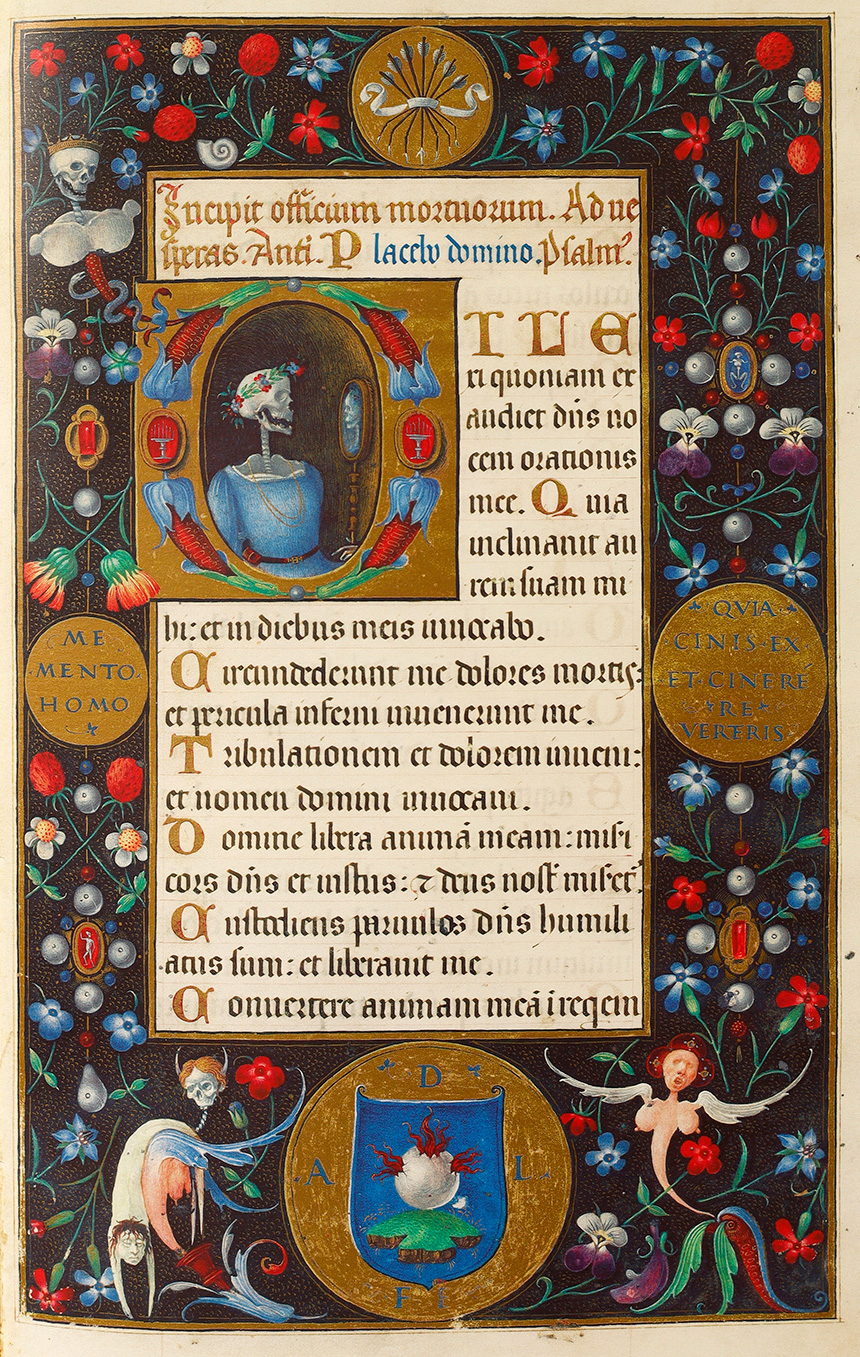 Incipit officium mortuorum. Ad ue
speras. Anti. Placebo domino. Psalm⁹.
DILE
xi quoniam ex
audiet dñs uo
cem orationis
mee. Quia
inclinauit au
rem suam mi
hi: et in diebus meis inuocabo.
Circundederunt me dolores mortis:
et pericula inferni inuenerunt me.
Tribulationem et dolorem inueni:
et nomen domini inuocaui.
Domine libera animā meam: misi
cors dñs et iustus: ⁊ deus nost̄ miseret̄.
Custodiens paruulos dñs humili
atus sum: et liberauit me.
Conuertere animam meā i reqem
ME
MENTO
HOMO
QVIA
CINIS·EX
ET·CINERE
RE
VERERIS
D
A L
F E